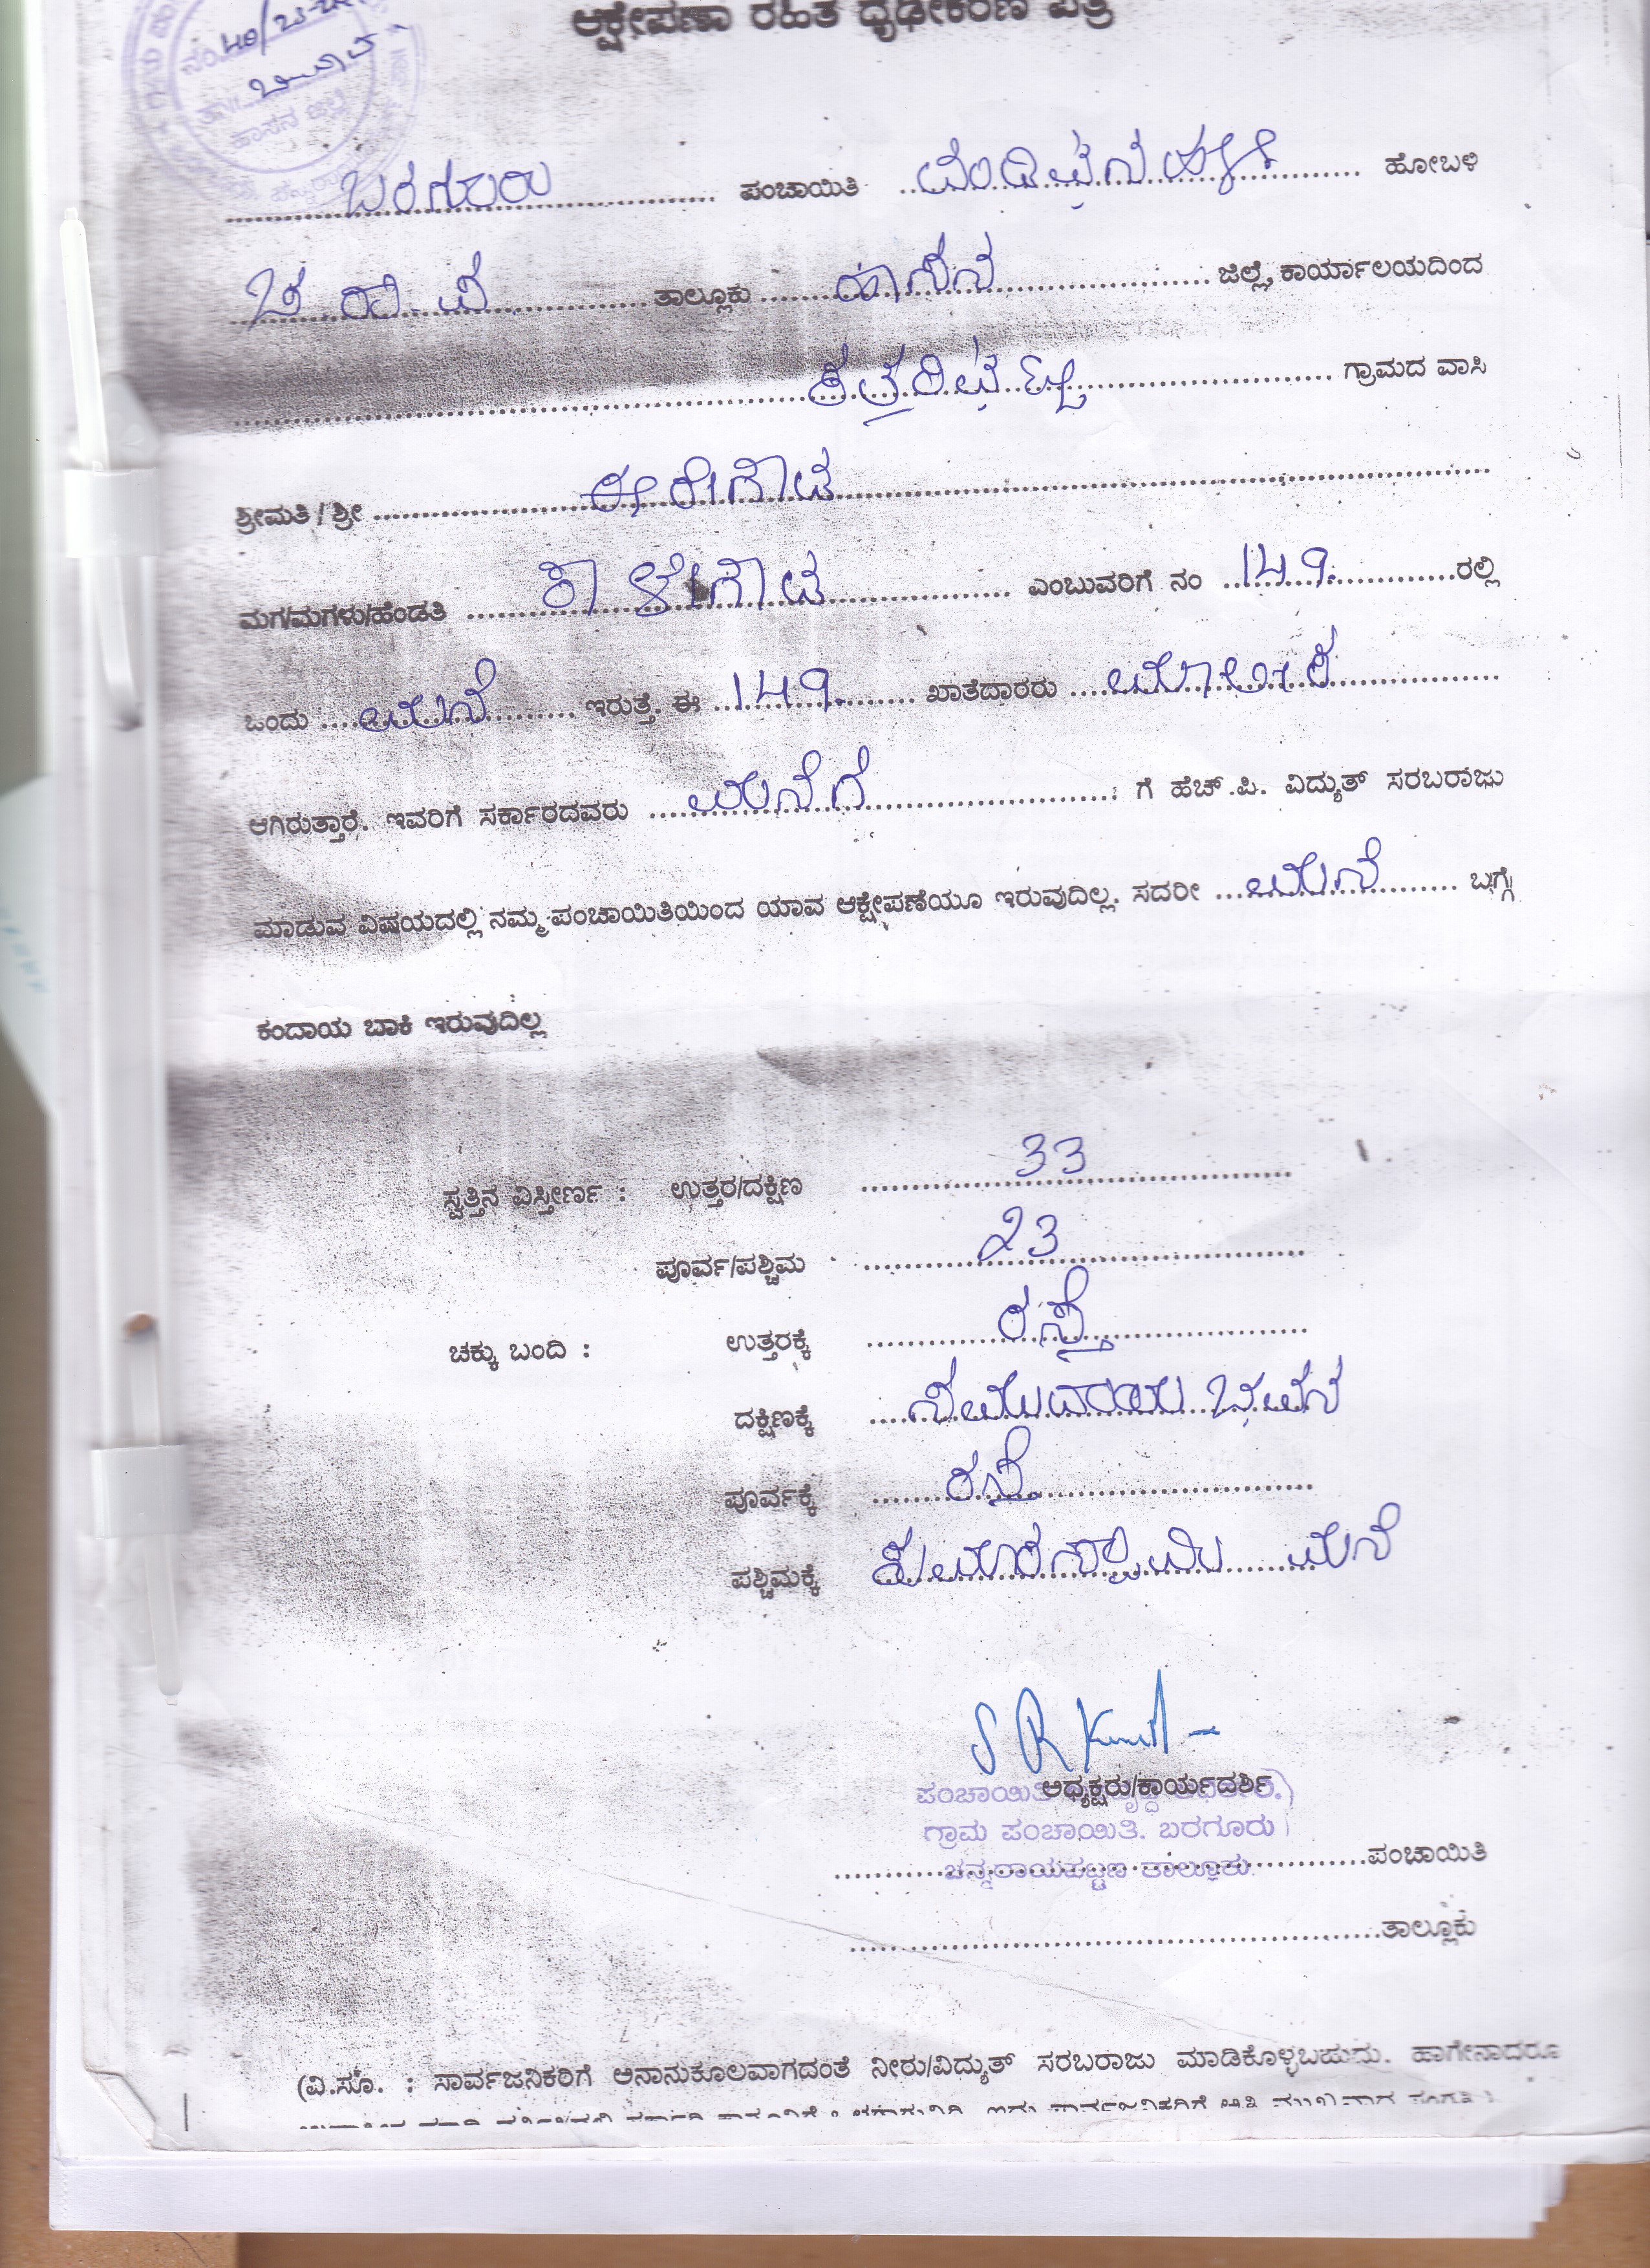 ಆಕ್ಷೇಪಣಾ ರಹಿತ ದೃಢೀಕರಣ ಪತ್ರ
ನಂ.
ತಾ॥
ಹಾಸನ ಜಿಲ್ಲೆ
ಬರಗೂರು ಪಂಚಾಯಿತಿ ಹೋಬಳಿ
ಚ.ರಾ.ಪ ತಾಲ್ಲೂಕು ಹಾಸನ ಜಿಲ್ಲೆ, ಕಾರ್ಯಾಲಯದಿಂದ
ಕತ್ತರಿಘಟ್ಟ ಗ್ರಾಮದ ವಾಸಿ
ಶ್ರೀಮತಿ / ಶ್ರೀ ಈರೇಗೌಡ
ಮಗ/ಮಗಳು/ಹೆಂಡತಿ ಕಾಳೇಗೌಡ ಎಂಬುವರಿಗೆ ನಂ 149. ರಲ್ಲಿ
ಒಂದು ಮನೆ ಇರುತ್ತೆ. ಈ 149. ಖಾತೆದಾರರು ಮಾಲೀಕ
ಆಗಿರುತ್ತಾರೆ. ಇವರಿಗೆ ಸರ್ಕಾರದವರು ಮನೆಗೆ ಗೆ ಹೆಚ್.ಪಿ. ವಿದ್ಯುತ್ ಸರಬರಾಜು
ಮಾಡುವ ವಿಷಯದಲ್ಲಿ ನಮ್ಮ ಪಂಚಾಯಿತಿಯಿಂದ ಯಾವ ಆಕ್ಷೇಪಣೆಯೂ ಇರುವುದಿಲ್ಲ. ಸದರೀ ಮನೆ ಬಗ್ಗೆ
ಕಂದಾಯ ಬಾಕಿ ಇರುವುದಿಲ್ಲ
ಸ್ವತ್ತಿನ ವಿಸ್ತೀರ್ಣ : ಉತ್ತರ/ದಕ್ಷಿಣ 33
ಪೂರ್ವ/ಪಶ್ಚಿಮ 23
ಚಕ್ಕು ಬಂದಿ : ಉತ್ತರಕ್ಕೆ ರಸ್ತೆ
ದಕ್ಷಿಣಕ್ಕೆ ಸಮುದಾಯ ಭವನ
ಪೂರ್ವಕ್ಕೆ ರಸ್ತೆ
ಪಶ್ಚಿಮಕ್ಕೆ ಕುಮಾರಸ್ವಾಮಿ ಮನೆ
ಅಧ್ಯಕ್ಷರು/ಕಾರ್ಯದರ್ಶಿ
ಗ್ರಾಮ ಪಂಚಾಯಿತಿ. ಬರಗೂರು
ಪಂಚಾಯಿತಿ
ಚನ್ನರಾಯಪಟ್ಟಣ ತಾಲ್ಲೂಕು
ತಾಲ್ಲೂಕು
(ವಿ.ಸೂ. : ಸಾರ್ವಜನಿಕರಿಗೆ ಅನಾನುಕೂಲವಾಗದಂತೆ ನೀರು/ವಿದ್ಯುತ್ ಸರಬರಾಜು ಮಾಡಿಕೊಳ್ಳಬಹುದು. ಹಾಗೇನಾದರೂ